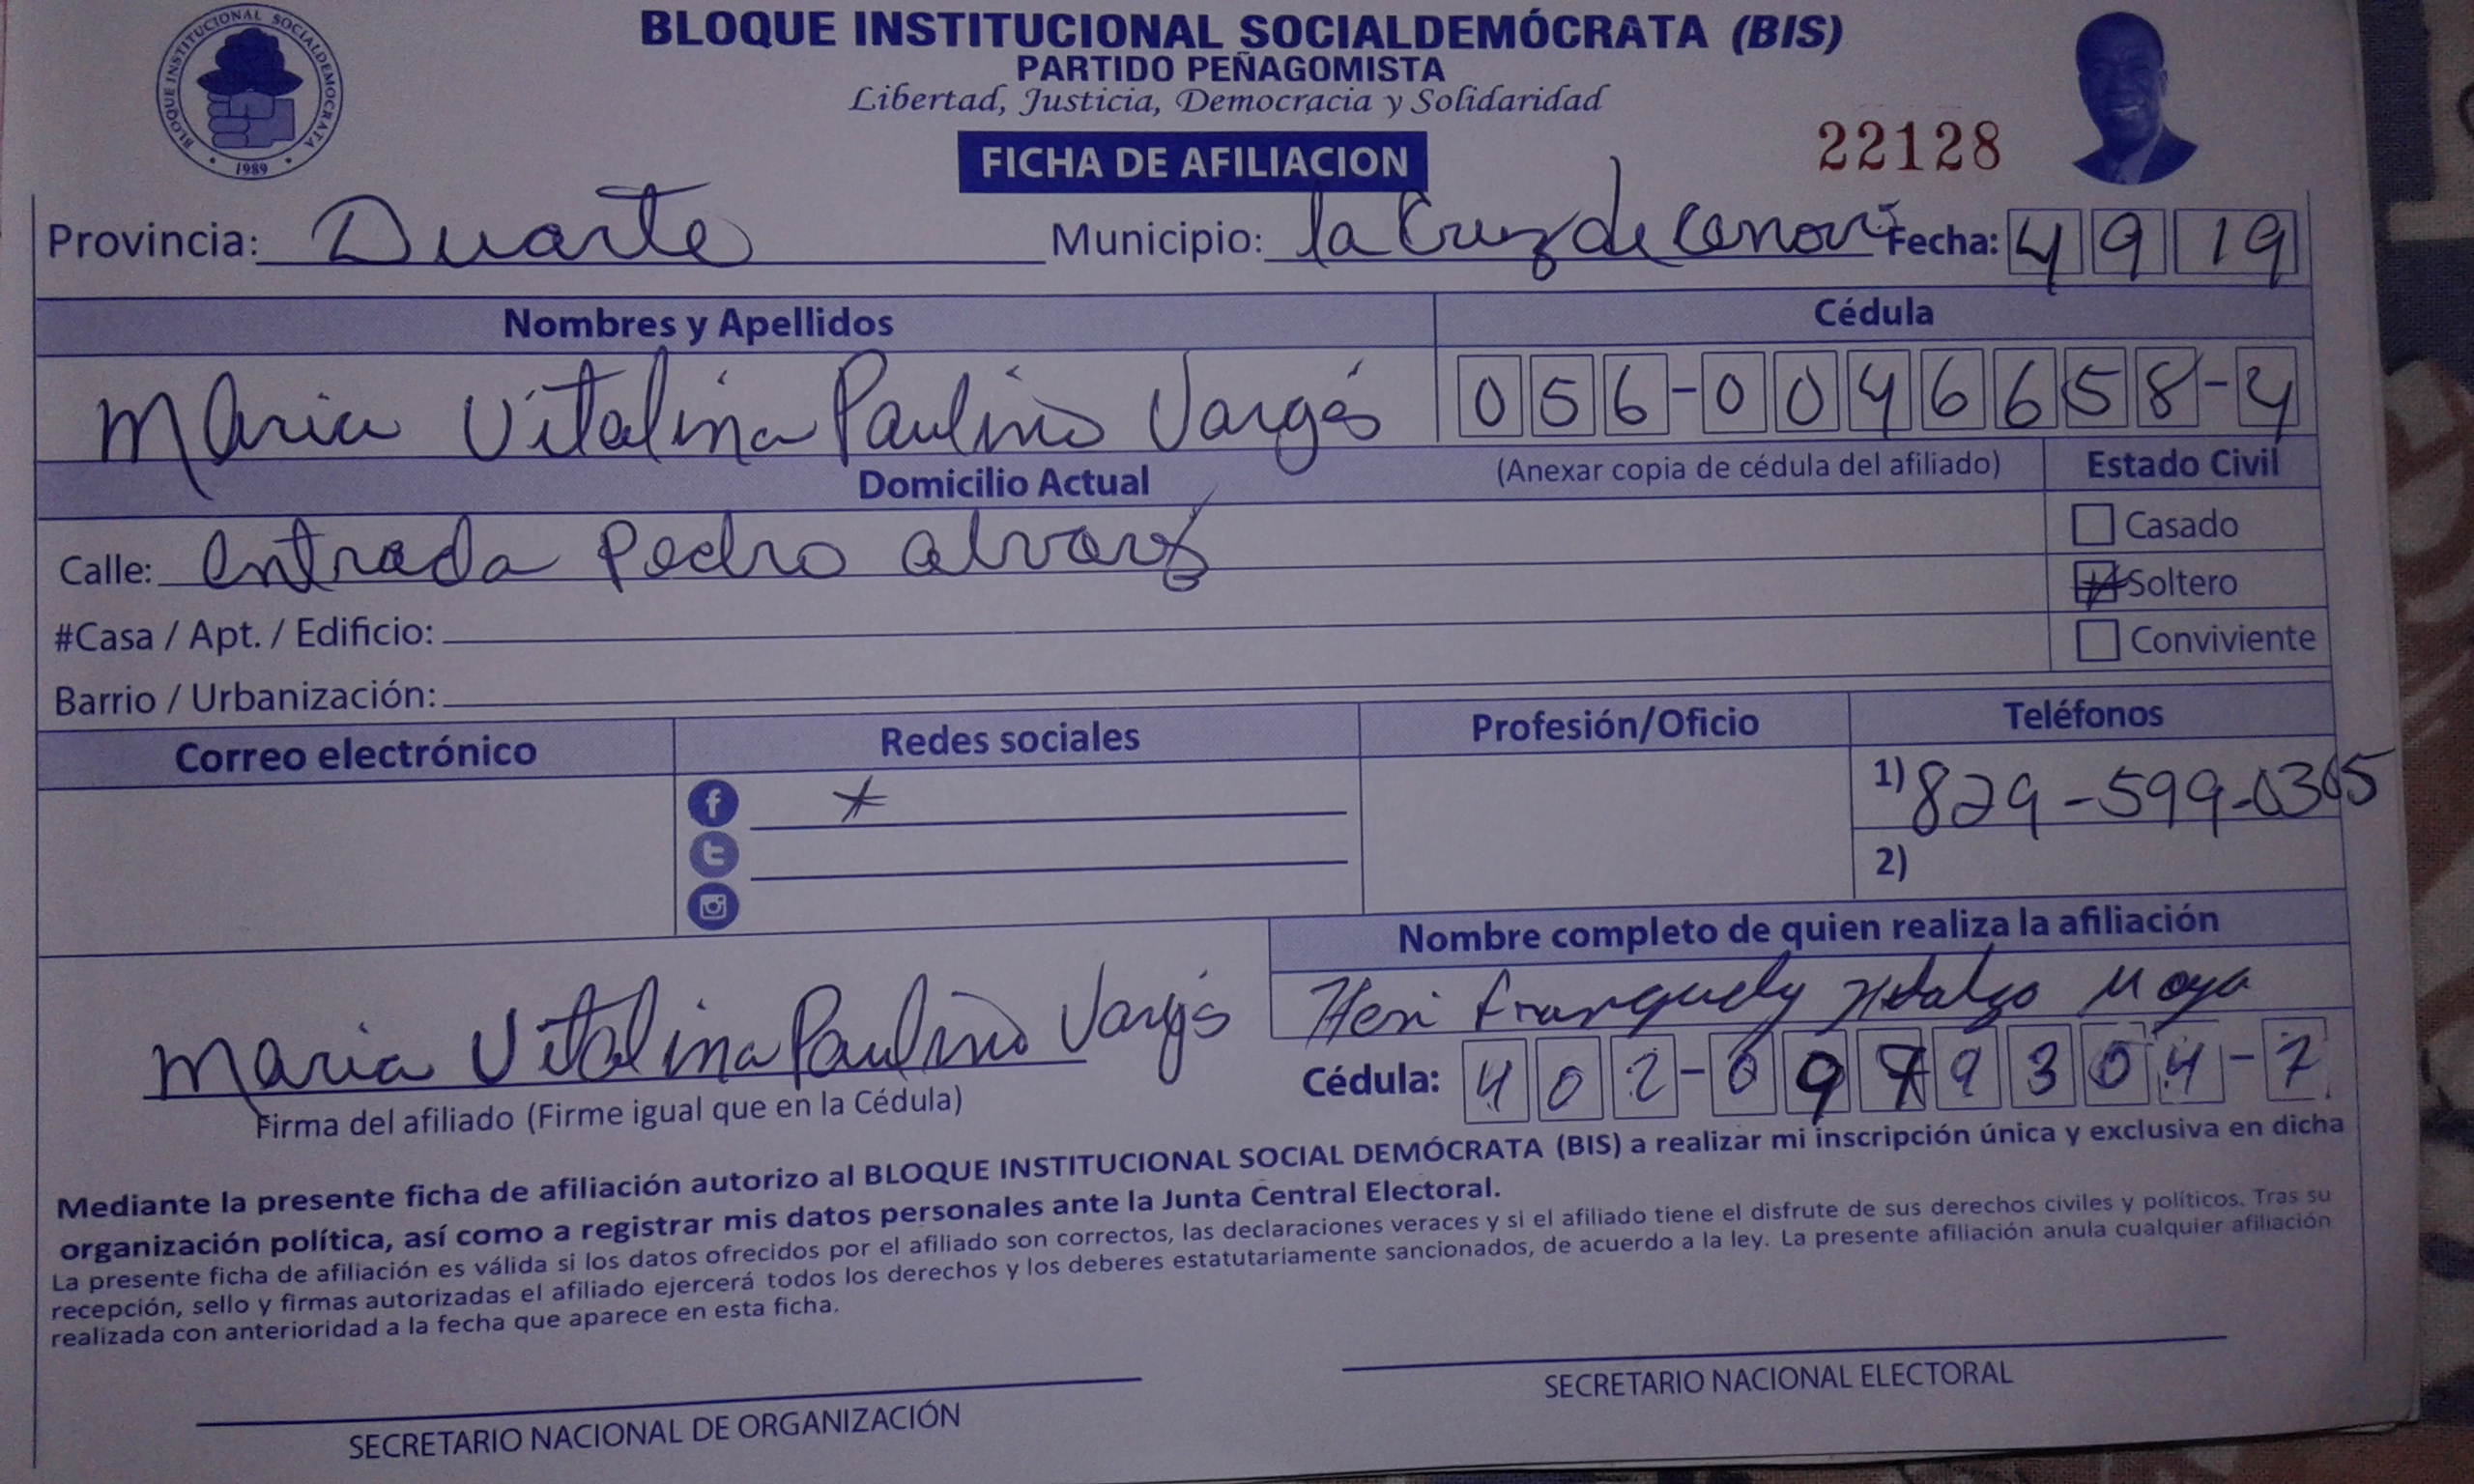 BLOQUE INSTITUCIONAL SOCIALDEMOCRATA
1989
BLOQUE INSTITUCIONAL SOCIALDEMÓCRATA (BIS)
PARTIDO PEÑAGOMISTA
Libertad, Justicia, Democracia y Solidaridad
FICHA DE AFILIACION
22128
Provincia: Duarte Municipio: la Cruz de Cenovi Fecha: 4 9 19
Nombres y Apellidos Cédula
Maria Vitalina Paulino Vargas 056-0046658-4
Domicilio Actual (Anexar copia de cédula del afiliado) Estado Civil
Calle: entrada Pedro alvarez Casado
Soltero
#Casa / Apt. / Edificio: Conviviente
Barrio / Urbanización:
Correo electrónico Redes sociales Profesión/Oficio Teléfonos
1) 829-599-0365
2)
Nombre completo de quien realiza la afiliación
Maria Vitalina Paulino Vargas Hidalgo Moya
Cédula: 402-0979304-7
Firma del afiliado (Firme igual que en la Cédula)
Mediante la presente ficha de afiliación autorizo al BLOQUE INSTITUCIONAL SOCIAL DEMÓCRATA (BIS) a realizar mi inscripción única y exclusiva en dicha
organización política, así como a registrar mis datos personales ante la Junta Central Electoral.
La presente ficha de afiliación es válida si los datos ofrecidos por el afiliado son correctos, las declaraciones veraces y si el afiliado tiene el disfrute de sus derechos civiles y políticos. Tras su
recepción, sello y firmas autorizadas el afiliado ejercerá todos los derechos y los deberes estatutariamente sancionados, de acuerdo a la ley. La presente afiliación anula cualquier afiliación
realizada con anterioridad a la fecha que aparece en esta ficha.
SECRETARIO NACIONAL DE ORGANIZACIÓN SECRETARIO NACIONAL ELECTORAL